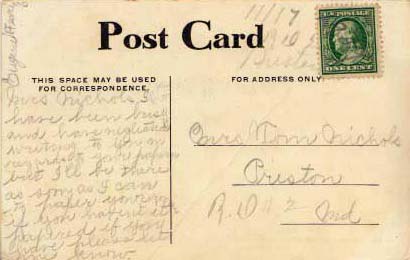 11/17
U.S. POSTAGE
ONE CENT
Post Card
THIS SPACE MAY BE USED
FOR CORRESPONDENCE.
FOR ADDRESS ONLY.
Mrs Nichols I
have been busy
and have neglected
writing to you in
regards to your papering
but I'll be there
as soon as I can
to paper your room
if you havent it
papered if you
have please let
me know
Mrs Tom Nichols
Preston
R.D # 2 Md